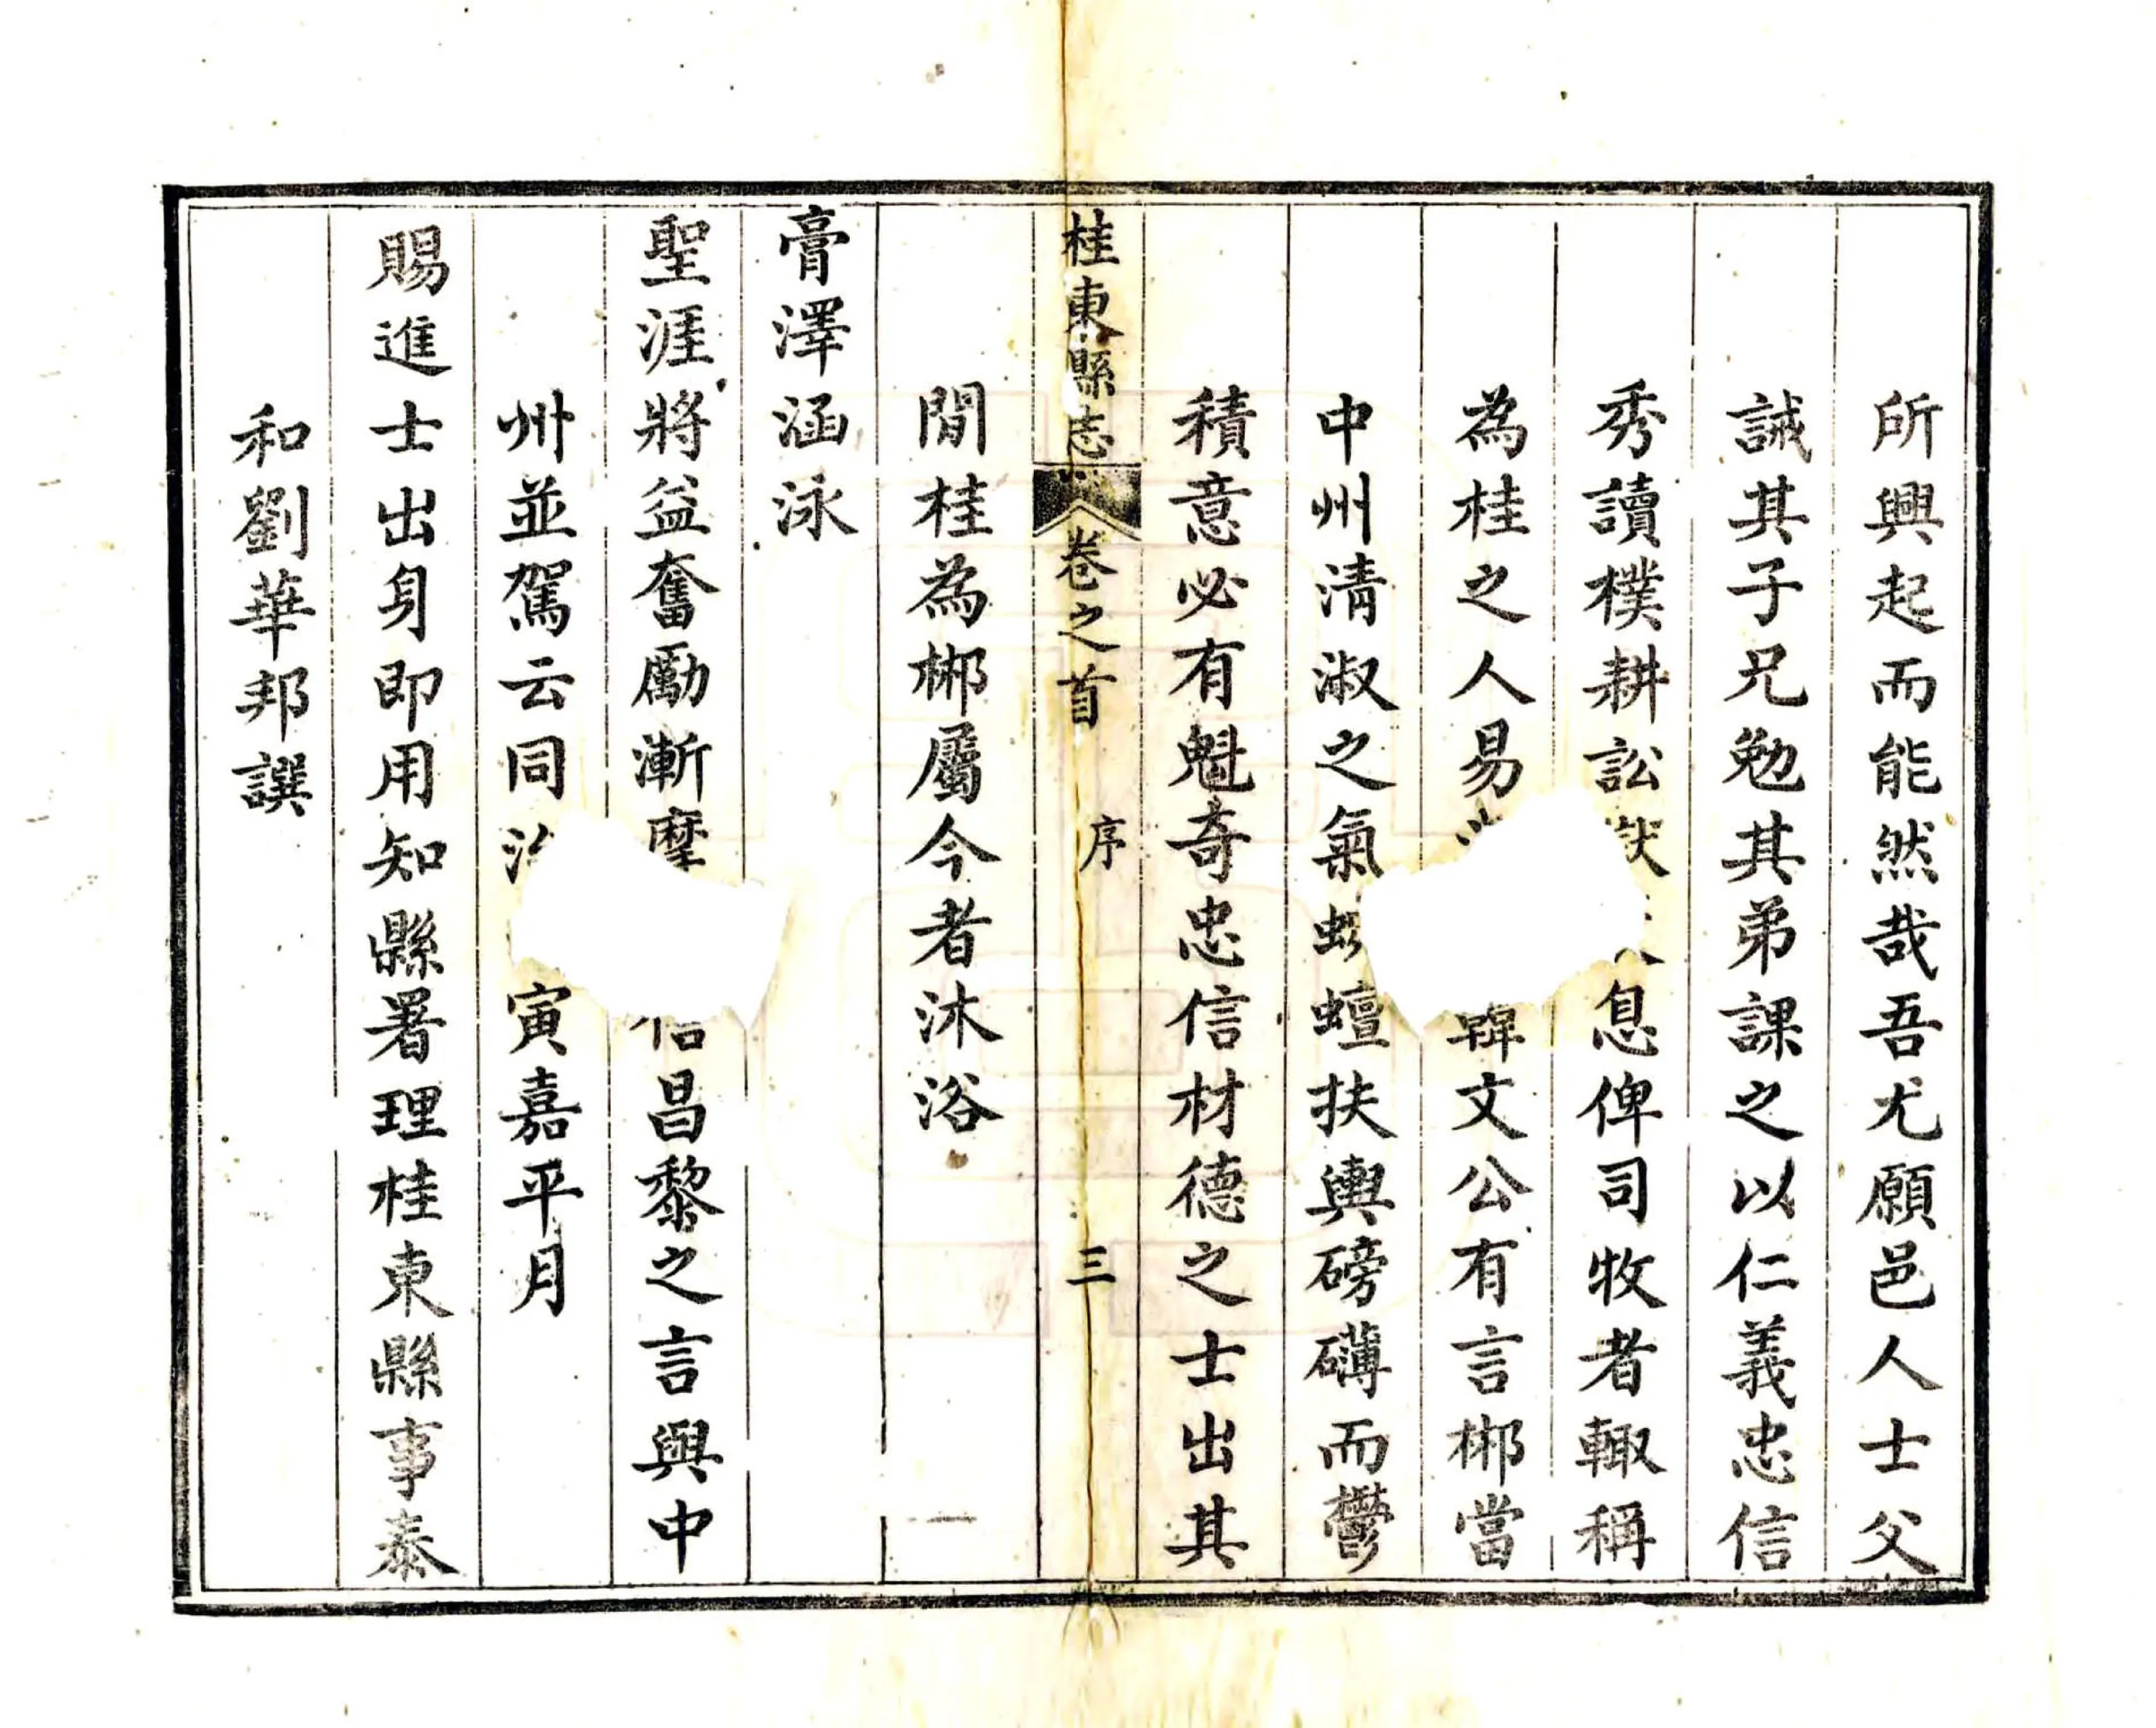 所興起而能然哉吾尤願邑人士父
誡其子兄勉其弟課之以仁義忠信
秀讀樸耕訟息俾司牧者輙稱
為桂之人易文公有言郴當
中州清淑之氣蜿蟺扶輿磅礴而鬱
積意必有魁奇忠信材德之士出其
桂東縣志 卷之首 序 三
間桂為郴屬今者沐浴
膏澤涵泳
聖涯將益奮勵漸摩信昌黎之言與中
州並駕云同治寅嘉平月
賜進士出身即用知縣署理桂東縣事泰
和劉華邦譔